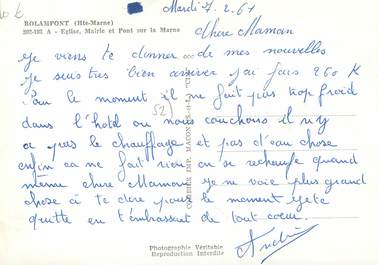 Mardi 7.2.61
ROLAMPONT (Hte-Marne)
202-193 A - Eglise, Mairie et Pont sur la Marne
Chere Maman
je viens te donner de mes nouvelles
je suis tres bien arriver j'ai fais 260 K
Pour le moment il ne fait pas trop froid
52
dans l'hotel ou nous couchons il n'y
a pas le chauffage et pas d'eau chose
enfin ca ne fait rien on se rechauffe quand
meme chere Maman je ne voie plus grand
chose à te dire pour le moment je te
quitte en t'embrassant de tout coeur.
André
Photographie Véritable
Reproduction Interdite